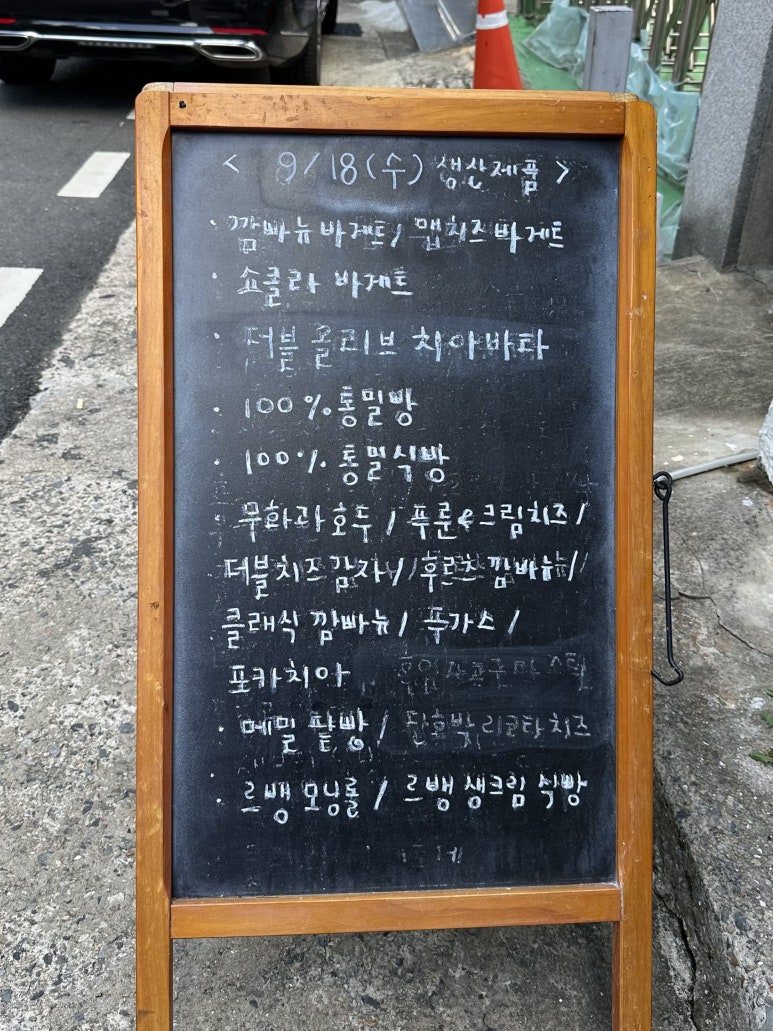 < 9/18(수) 생산제품 >
· 깜빠뉴바게트/ 맵치즈바게트
· 쇼콜라 바게트
· 더블 올리브 치아바타
· 100%통밀빵
· 100% 통밀식빵
· 무화과호두 / 푸룬&크림치즈/
더블치즈감자/ 후르츠깜빠뉴/
클래식 깜빠뉴/ 푸가스/
포카치아
· 메밀 팥빵/ 단호박리코타치즈
· 르뱅 모닝롤/ 르뱅 생크림 식빵